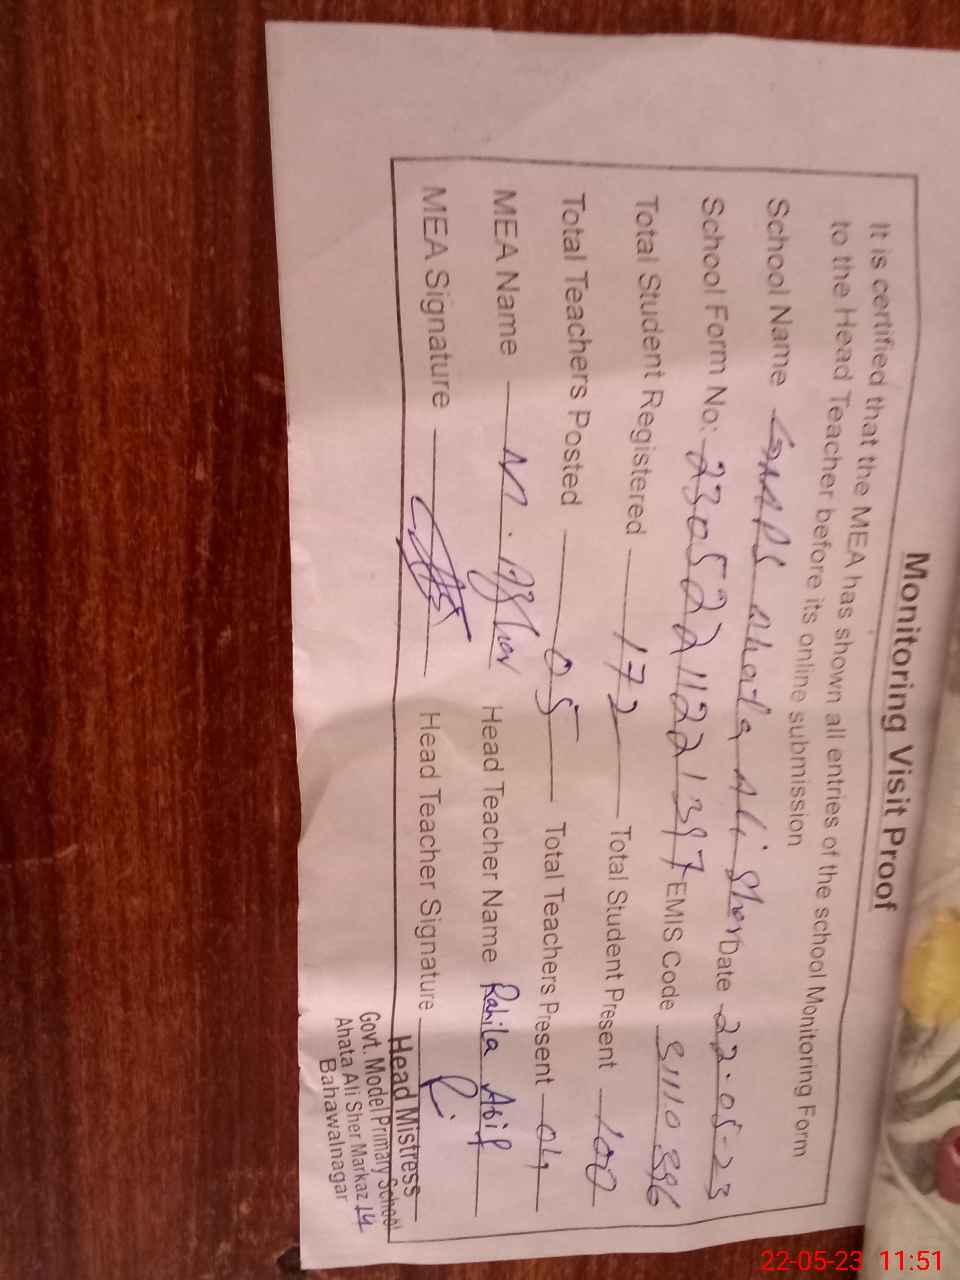 Monitoring Visit Proof
It is certified that the MEA has shown all entries of the school Monitoring Form
to the Head Teacher before its online submission
School Name GMMPS Ahata Ali Sher Date 22-05-23
School Form No: EMIS Code
Total Student Registered 172 Total Student Present 100
Total Teachers Posted 05 Total Teachers Present 04
MEA Name M. Head Teacher Name Rahila Asif
MEA Signature Head Teacher Signature
Head Mistress
Govt. Model Primary School
Ahata Ali Sher Markaz 14
Bahawalnagar
22-05-23 11:51